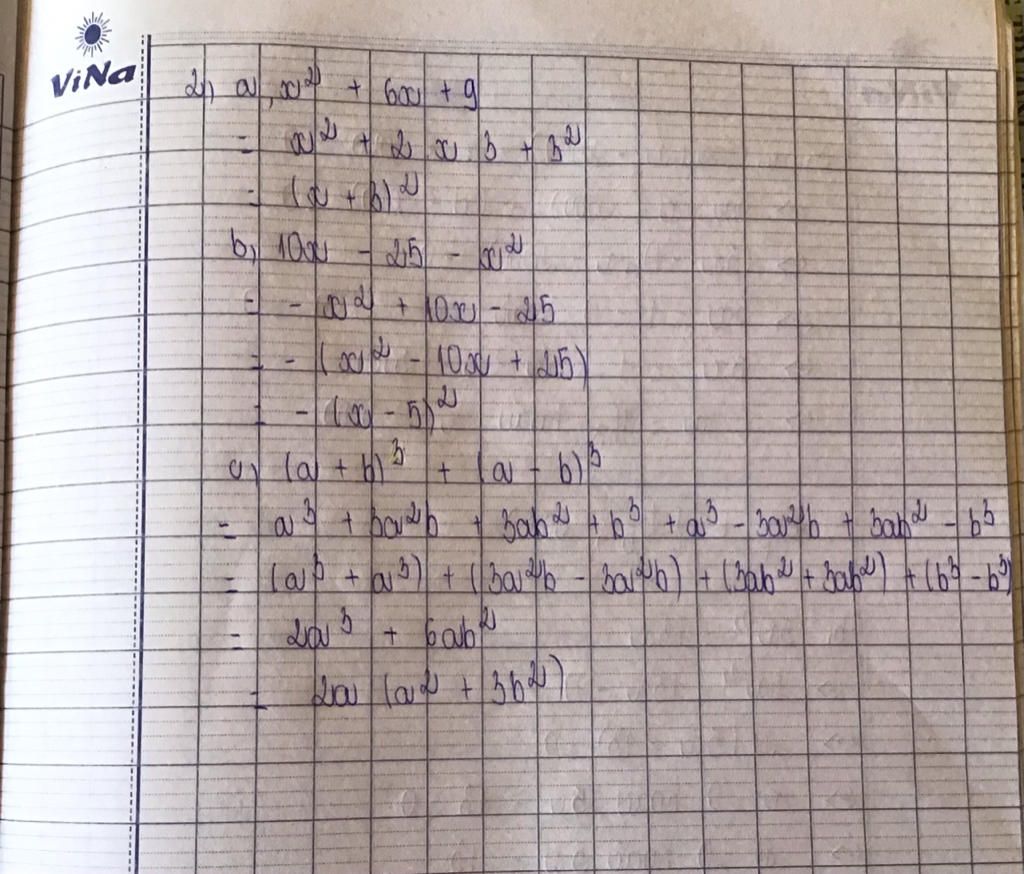 ViNa
2) a, x² + 6x + 9
= x² + 2 x 3 + 3²
= (x + 3)²
b, 10x - 25 - x²
= - x² + 10x - 25
= - (x² - 10x + 25)
= - (x - 5)²
c, (a + b)³ + (a - b)³
= a³ + 3a²b + 3ab² + b³ + a³ - 3a²b + 3ab² - b³
= (a³ + a³) + (3a²b - 3a²b) + (3ab² + 3ab²) + (b³ - b³)
= 2a³ + 6ab²
= 2a (a² + 3b²)